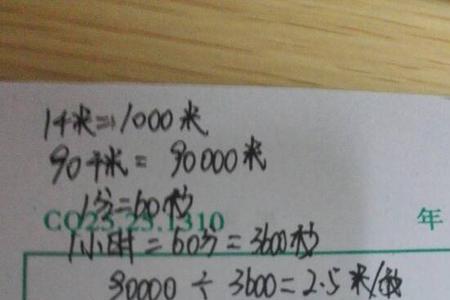 1千米=1000米
90千米=90000米
1分=60秒
CQ23.23.1310 年
1小时=60分=3600秒
90000÷3600=2.5米/秒